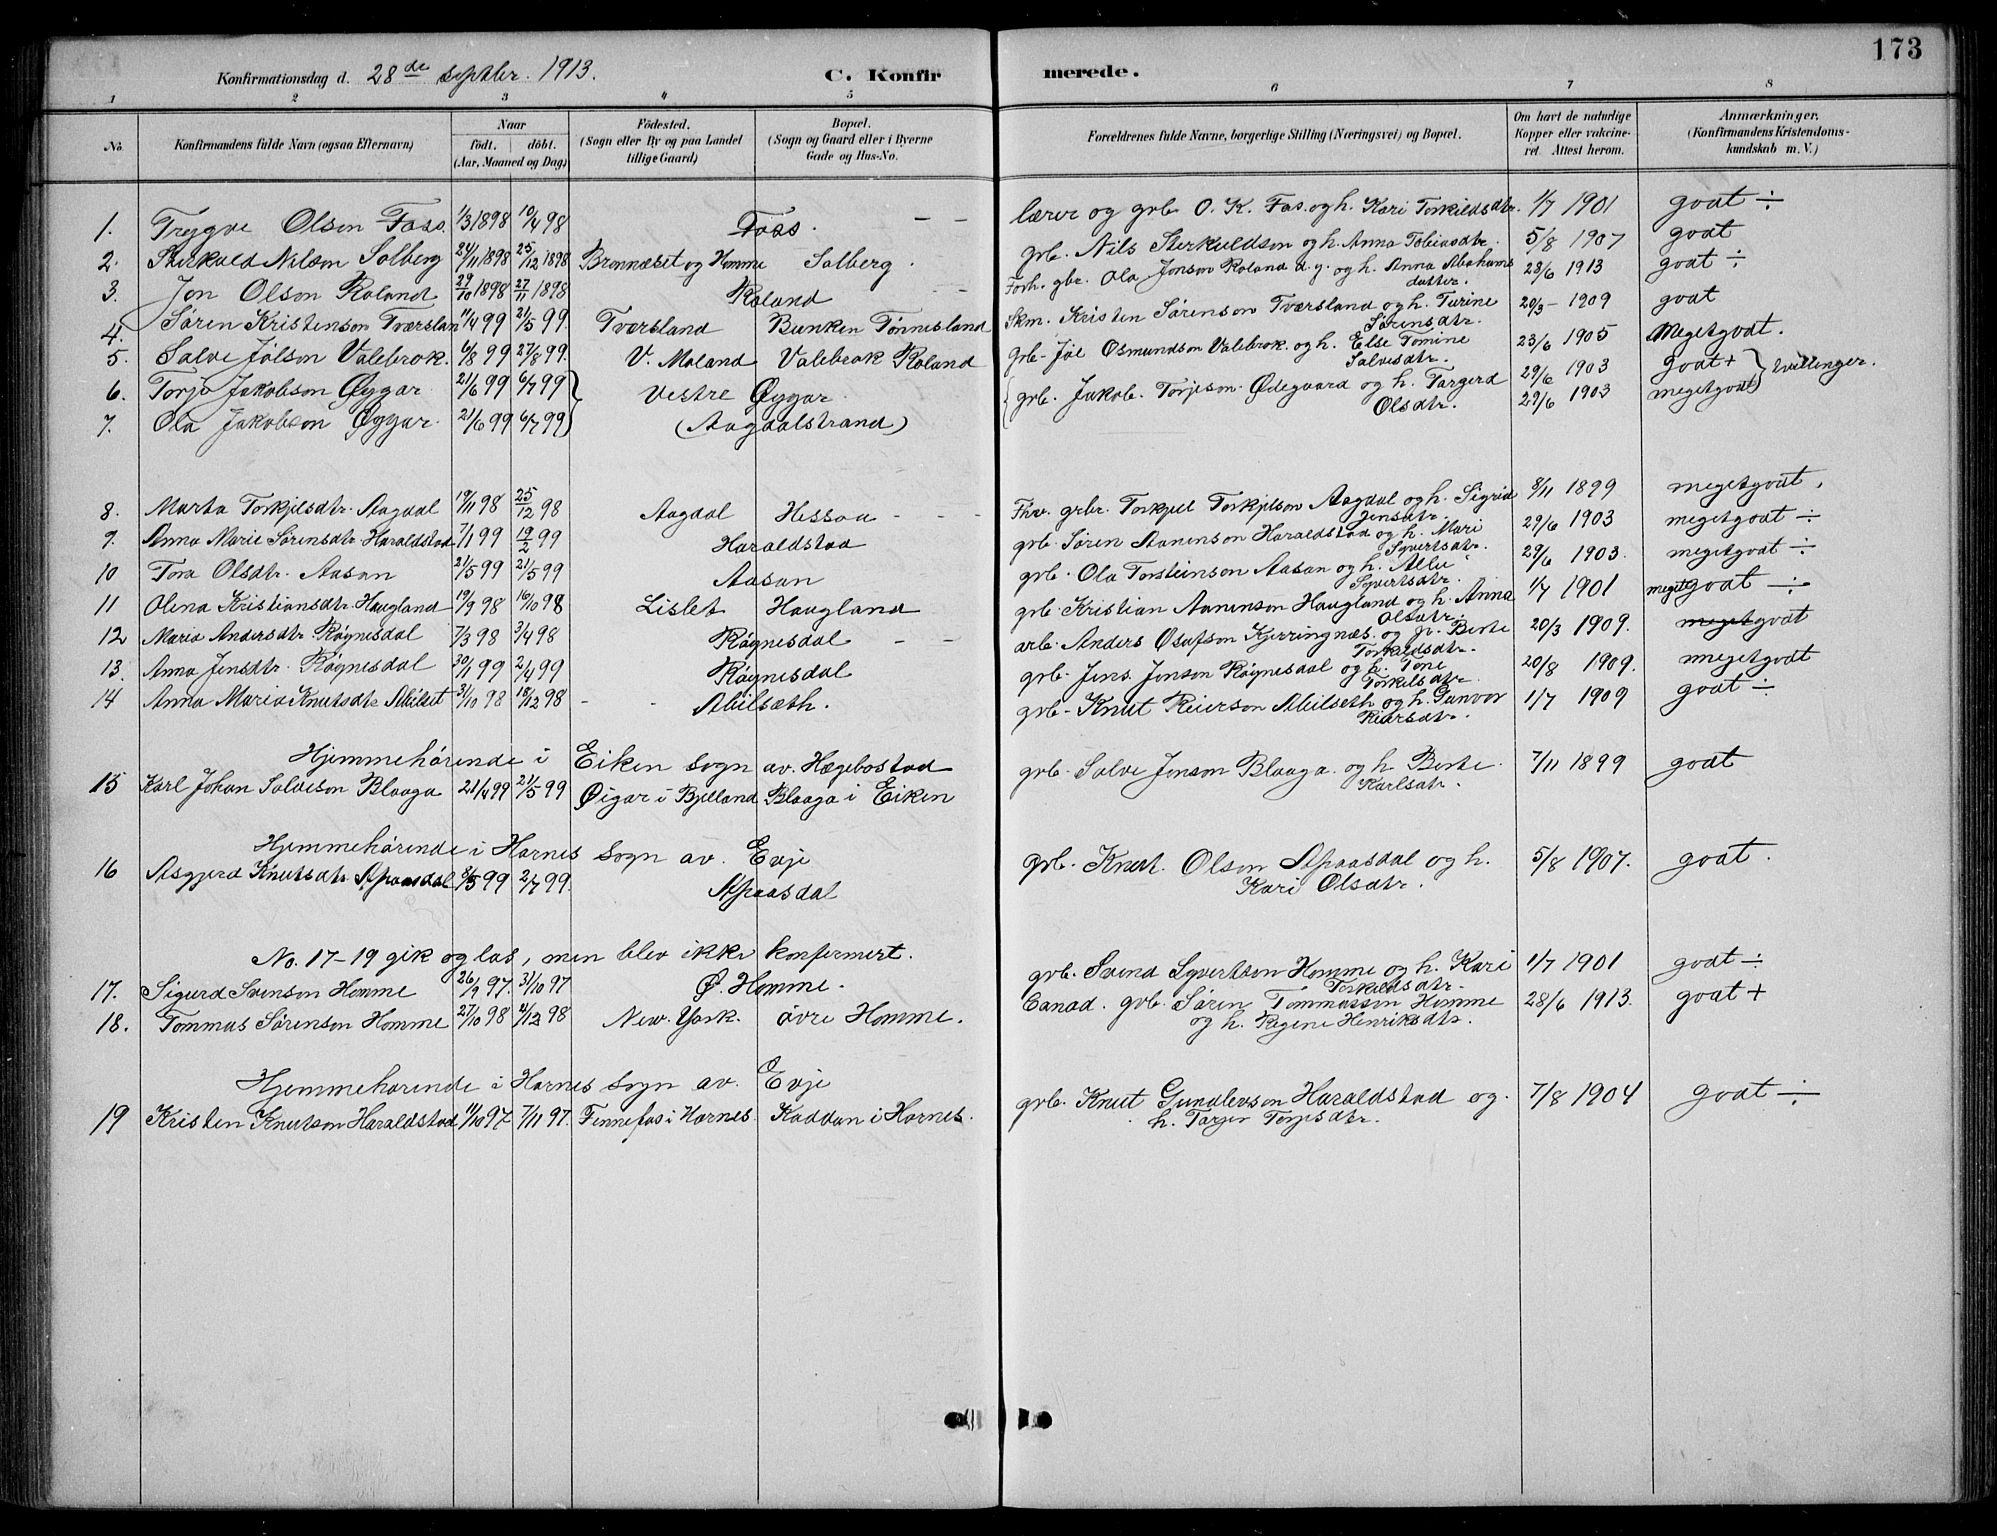 173
Konfirmationsdag d. 28de septbr. 1913. C. Konfirmerede.
1 2 3 4 5 6 7 8
No. Konfirmandens fulde Navn (ogsaa Efternavn) Naar født. døbt. (Aar, Maaned og Dag) Fødested. (Sogn eller By og paa Landet tillige Gaard) Bopæl. (Sogn og Gaard eller i Byerne Gade og Hus-No. Forældrenes fulde Navne, borgerlige Stilling (Næringsvei) og Bopæl. Om havt de naturlige Kopper eller vaccineret. Attest herom. Anmærkninger. (Konfirmandens Kristendomskundskab m. V.)
1. Trygve Olson Foss. 1/3 1898 10/4 98 Foss. — — lærer og grb. O. K. Fos. og h. Kari Torkildsdtr. 1/7 1901 godt ÷
2. Sterkuld Nilson Solberg 24/11 1898 25/12 1898 Brønnæset og Homme Solberg. grb. Nils Sterkuldson og h. Anna Tobiasdtr. 5/8 1907 godt
3. Jon Olson Roland 29/10 1898 27/11 1898 Roland Forh. gbr. Ola Jonson Roland d. y. og h. Anna Abahams datter. 28/6 1913 godt ÷
4. Søren Kristenson Tværslan 11/4 99 21/5 99. Tversland Bunken Tønnesland Skm. Kristen Sørenson Tværsland og h. Turine Sørensdtr. 20/3 - 1909 godt
5. Salve Jølson Valebrok. 6/8 99 27/8 99. V. Moland Valebrok Roland grb- Jøl Osmundson Valebrok. og h. Else Tomine Salvesdtr. 23/6 1905 Megetgodt.
6. Torjo Jakobson Øygar 21/6 99 6/7 99 } Vestre Øygar. { grb. Jakob. Torjeson. Ødegaard og h. Targerd Olsdtr. 29/6 1903 godt + } Tvillinger.
7. Ola Jakobson Øygar. 21/6 99 6/7 99 (Aagdalstrand) 29/6 1903 megetgodt
8. Marta Torkjelsdtr. Aagdal 19/11 98 25/12 98 Aagdal Hessaa - - - Fhv. grbr. Torkjel Torkjelson Aagdal og h. Sigrid Jensdtr. 8/11 1899 megetgodt,
9. Anna Marie Sørensdtr. Haraldstad 7/1 99 19/2 99 Haraldstad grb. Søren Aanenson Haraldstad og h. Mari Syvertsdtr. 29/6 1903 megetgodt ÷
10 Tora Olsdtr. Aasan 21/5 99 21/5 99 Aasan grb. Ola Torsteinson Aasan og h. Allu Syvertsdtr. 29/6 1903. megetgodt ÷
11 Olena Kristiansdtr. Haugland 19/9 98 16/10 98 Lislet Haugland grb. Kristian Aanenson Haugland og h. Anna Olsdtr. 1/7 1901 megetgodt ÷
12 Maria Andersdtr. Røgnesdal 7/3 98 3/4 98 Røgnesdal — — arb. Anders Osufson Kjerringnæs. og h. Berte Torkildsdtr. 20/3 1909. megetgodt
13. Anna Jensdtr. Røgnesdal 30/1 99 2/4 99 Røgnesdal grb. Jens. Jenson Røgnesdal og h. Tone Torkilsdtr. 20/8 1909. megetgodt
14 Anna Maria Knutsdtr Abilset 31/10 98 18/12 98 - - Abilseth. grb- Knut Reierson Abilseth og h. Gunvor Reiersdtr. 1/7 1909 godt ÷
Hjemmehørende i Eiken sogn av. Hægebostad
15 Karl Johan Salveson Blaaga 21/4 99 21/5 99 Øigar i Bjelland Blaaga i Eiken grb. Salve Jonson Blaaga. og h Berte. Karlsdtr. 7/11 1899 godt
Hjemmehørende i Hornes sogn av. Evje
16 Asgjerd Knutsdtr Apaasdal 8/5 99 2/7 99. Apaasdal grb. Knut. Olson Apaasdal og h. Kari Olsdtr. 5/8 1907. godt.
No. 17-19 gik og las, men blev ikke konfermert.
17. Sigurd Svenson Homme 26/9 97. 31/10 97 Ø. Homme. grb. Svend Syvertson Homme og h. Kari Torkildsdtr. 1/7 1901 godt ÷
18. Tommas Sørenson Homme 27/10 98 4/12 98 New. York. øvre Homme. Canad. grb. Søren Tommasson Homme og h. Regene Henriksdtr. 28/6 1913. godt +
Hjemmehørende i Hornes sogn av. Evje
19 Kristen Knutson Haraldstad 11/10 97 7/11 97. Fennefos i Hornes. Kaddan i Hornes. grb. Knut Gundleson Haraldstad og. h. Targer Torjesdtr. 7/8 1904 godt ÷